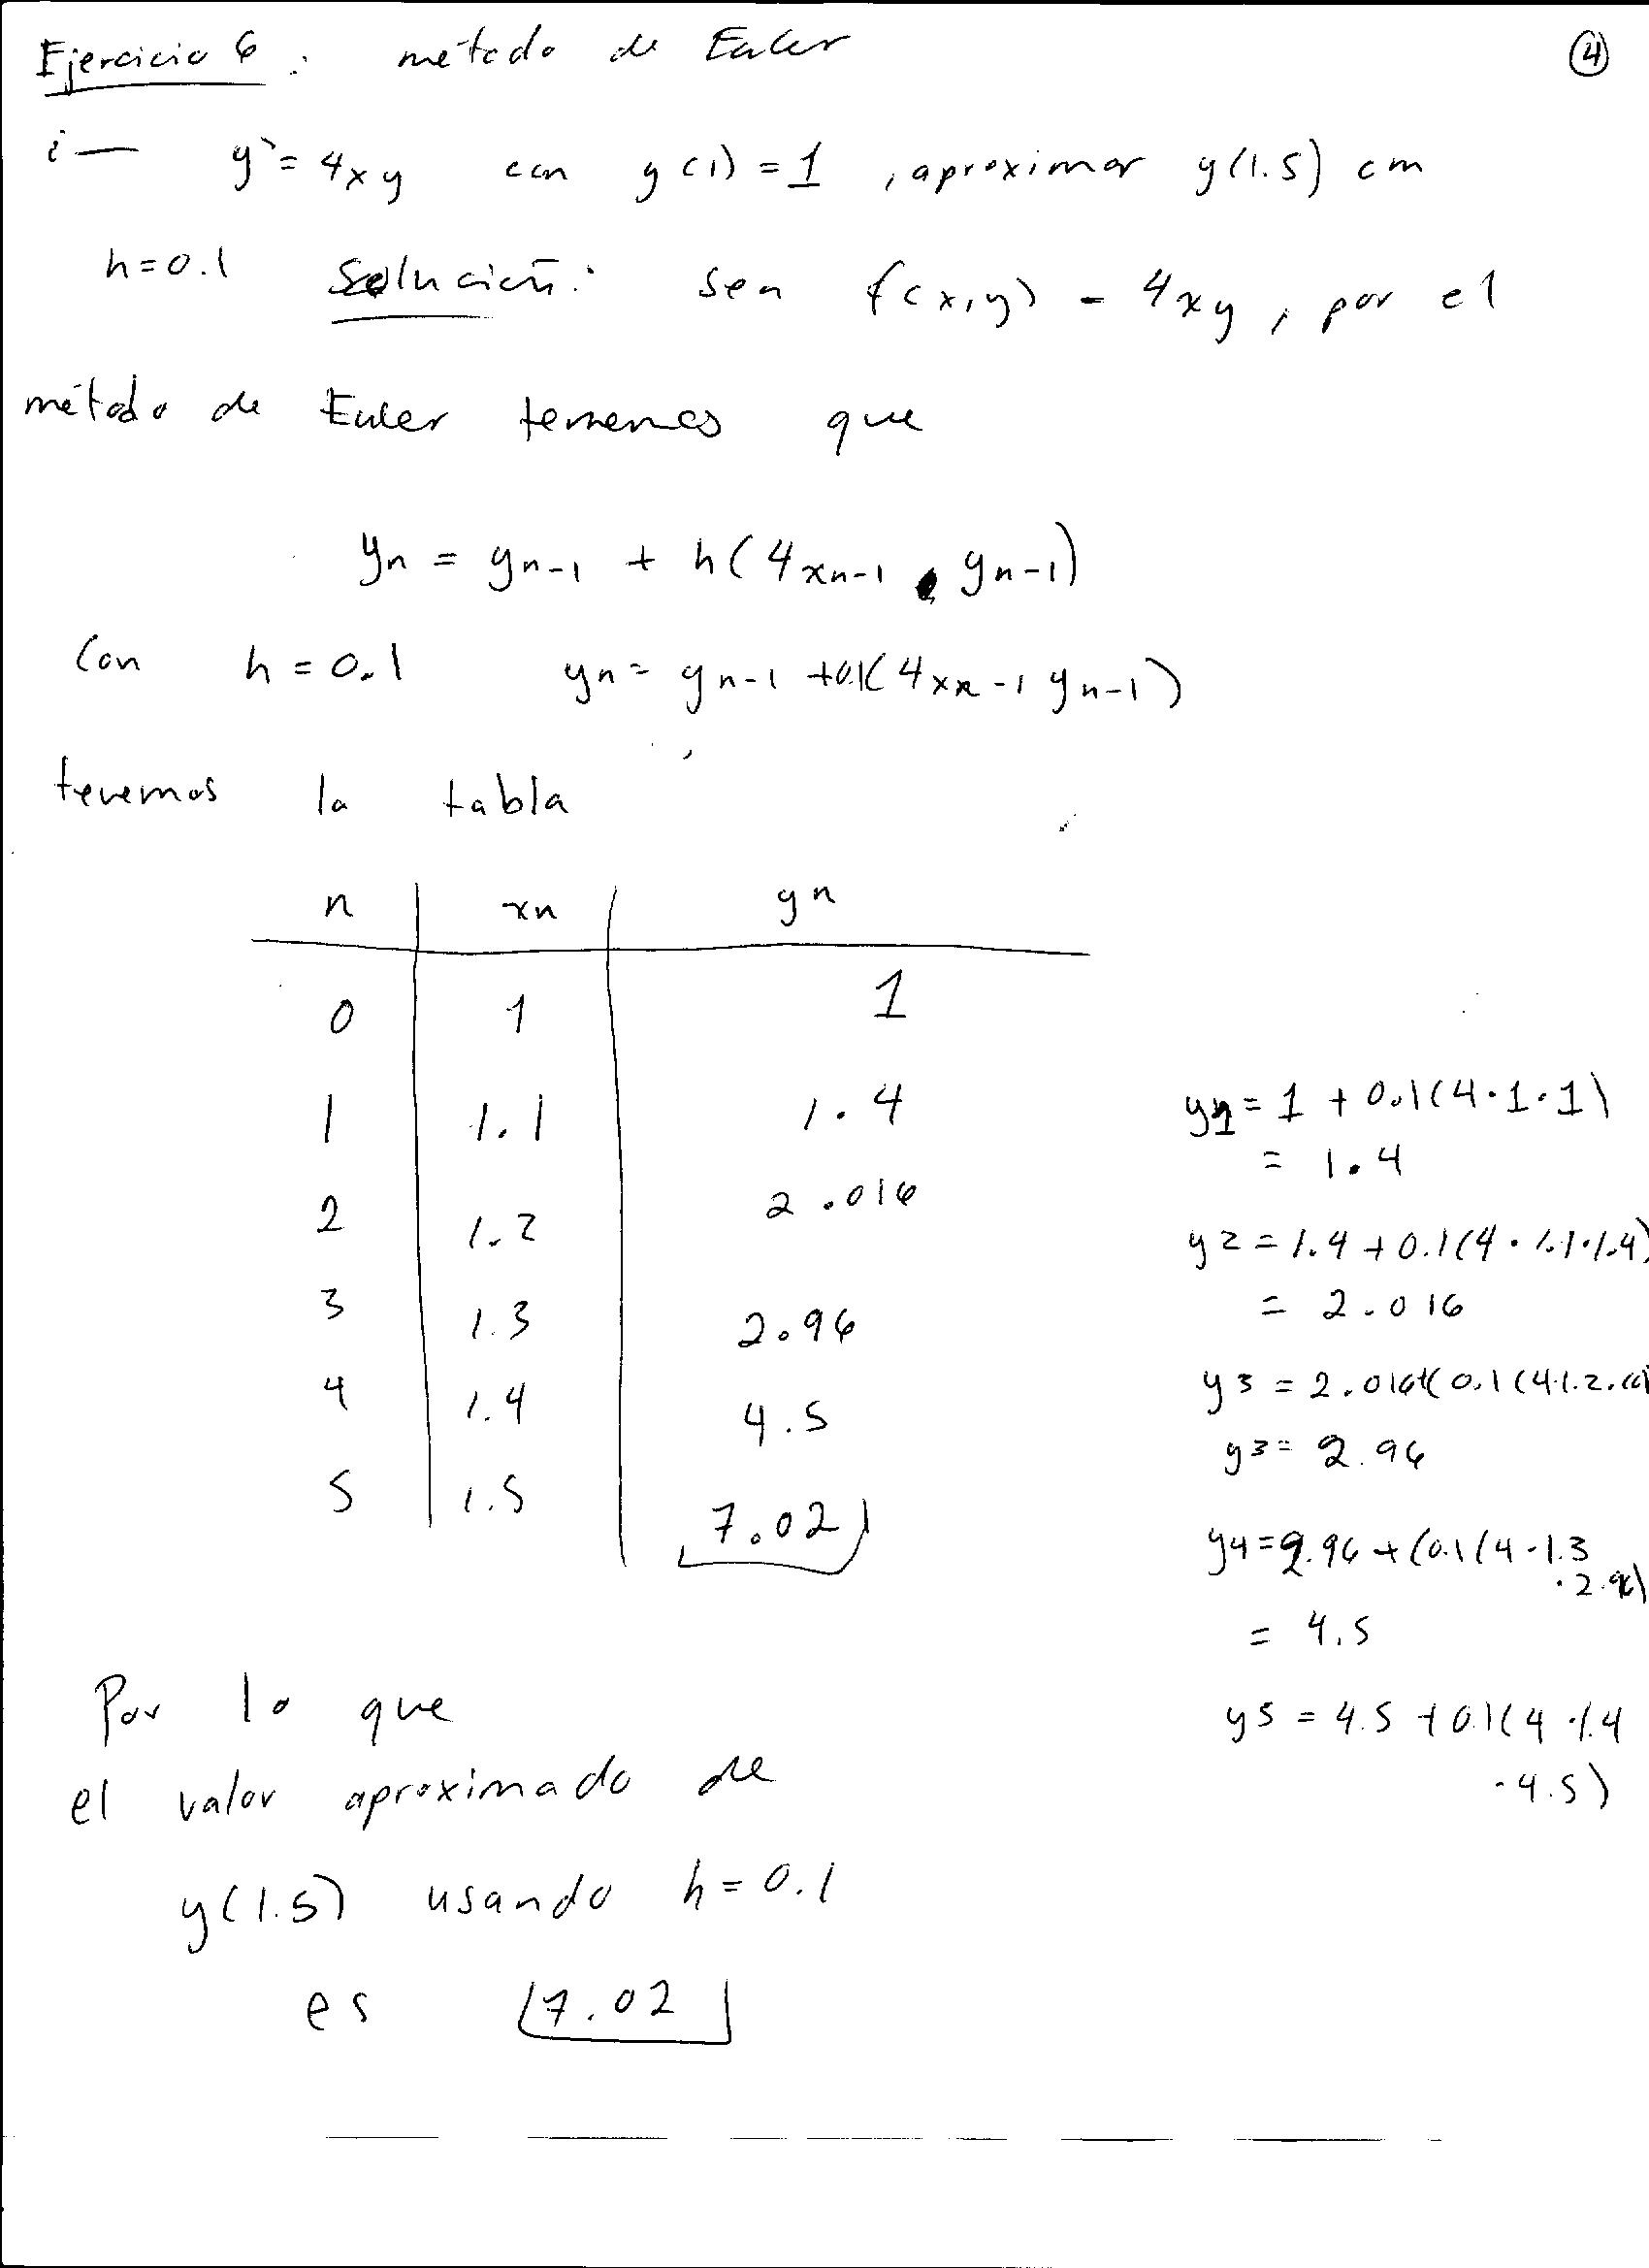 Ejercicio 6 : método de Euler ④
i — y' = 4xy con y(1) = 1 , aproximar y(1.5) con
h=0.1 Solución: sea f(x,y) = 4xy, por el
método de Euler tenemos que
yn = yn-1 + h(4xn-1 · yn-1)
Con h = 0.1 yn = yn-1 +0.1(4xn-1 yn-1)
tenemos la tabla
n xn yn
0 1 1
1 1.1 1.4
2 1.2 2.016
3 1.3 2.96
4 1.4 4.5
5 1.5 7.02
y1 = 1 + 0.1(4·1·1)
= 1.4
y2 = 1.4 + 0.1(4·1.1·1.4)
= 2.016
y3 = 2.016+(0.1(4·1.2·
y3 = 2.96
y4 = 2.96 + (0.1(4·1.3
·2.96)
= 4.5
y5 = 4.5 + 0.1(4·1.4
·4.5)
Por lo que
el valor aproximado de
y(1.5) usando h = 0.1
es 7.02